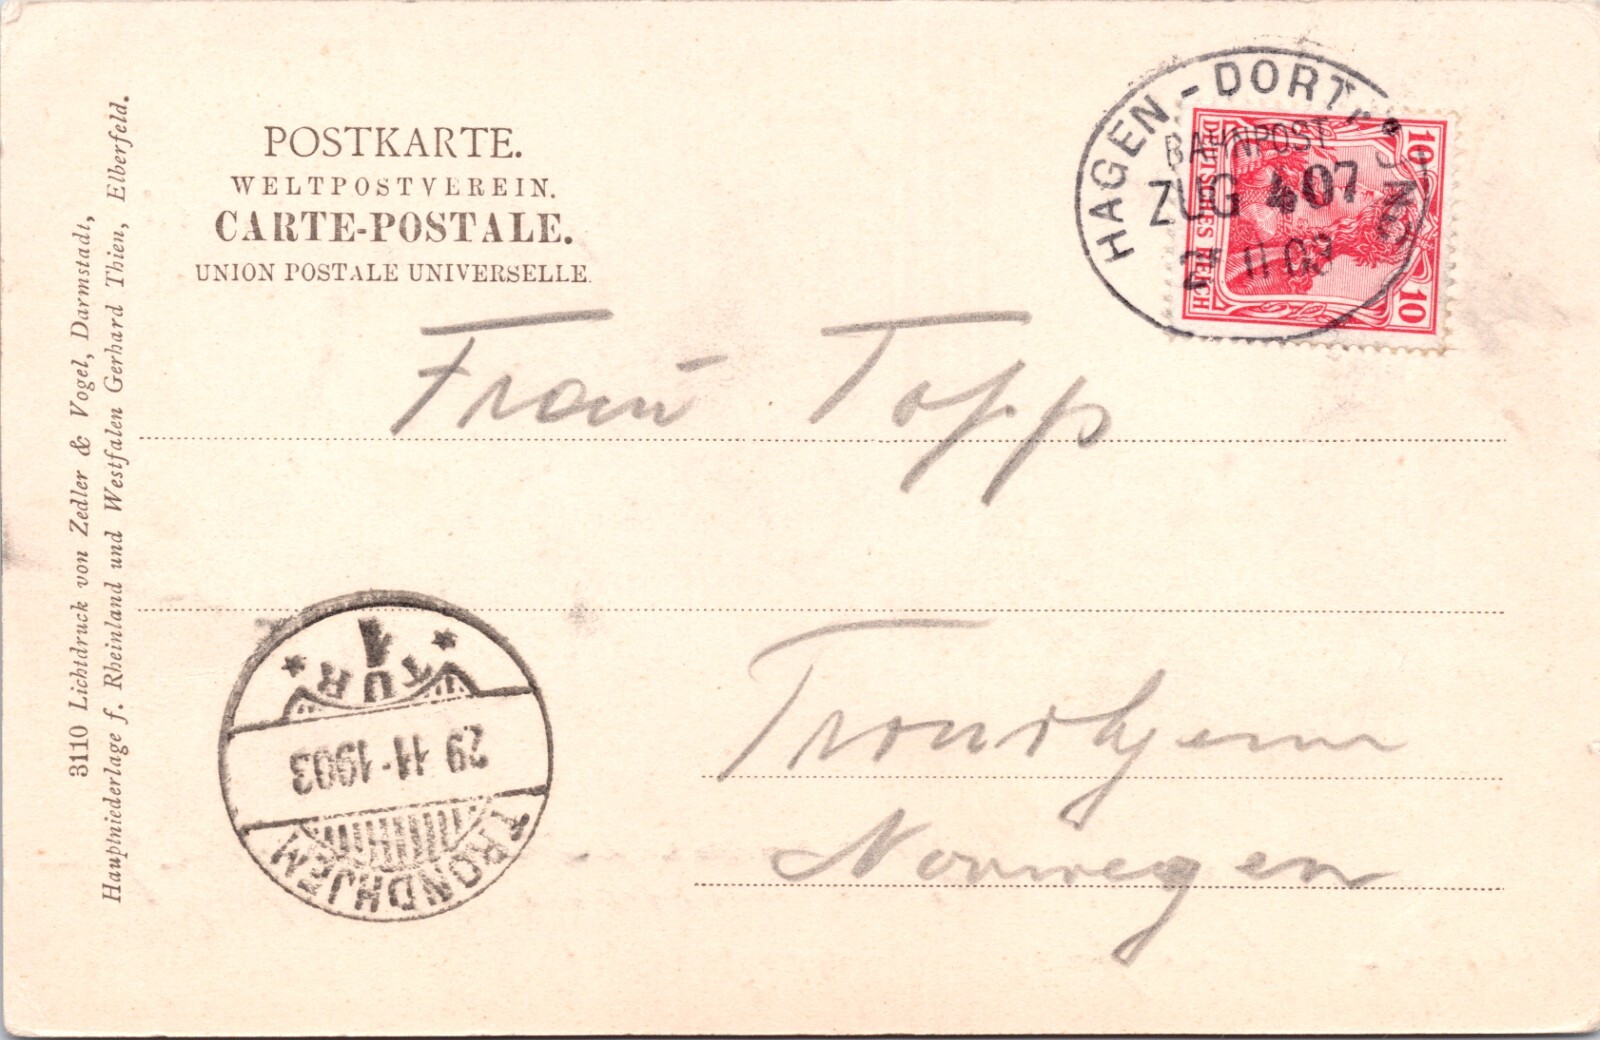 POSTKARTE.
WELTPOSTVEREIN.
CARTE-POSTALE.
UNION POSTALE UNIVERSELLE.
3110 Lichtdruck von Zedler & Vogel, Darmstadt,
Hauptniederlage f. Rheinland und Westfalen Gerhard Thien, Elberfeld.
HAGEN - DORTMUND
BAHNPOST
ZUG 407
11 03
10
DEUTSCHES REICH
10
Frau Topp
Trondhjem
Norwegen
1
TUR
29 11-1903
TRONDHJEM